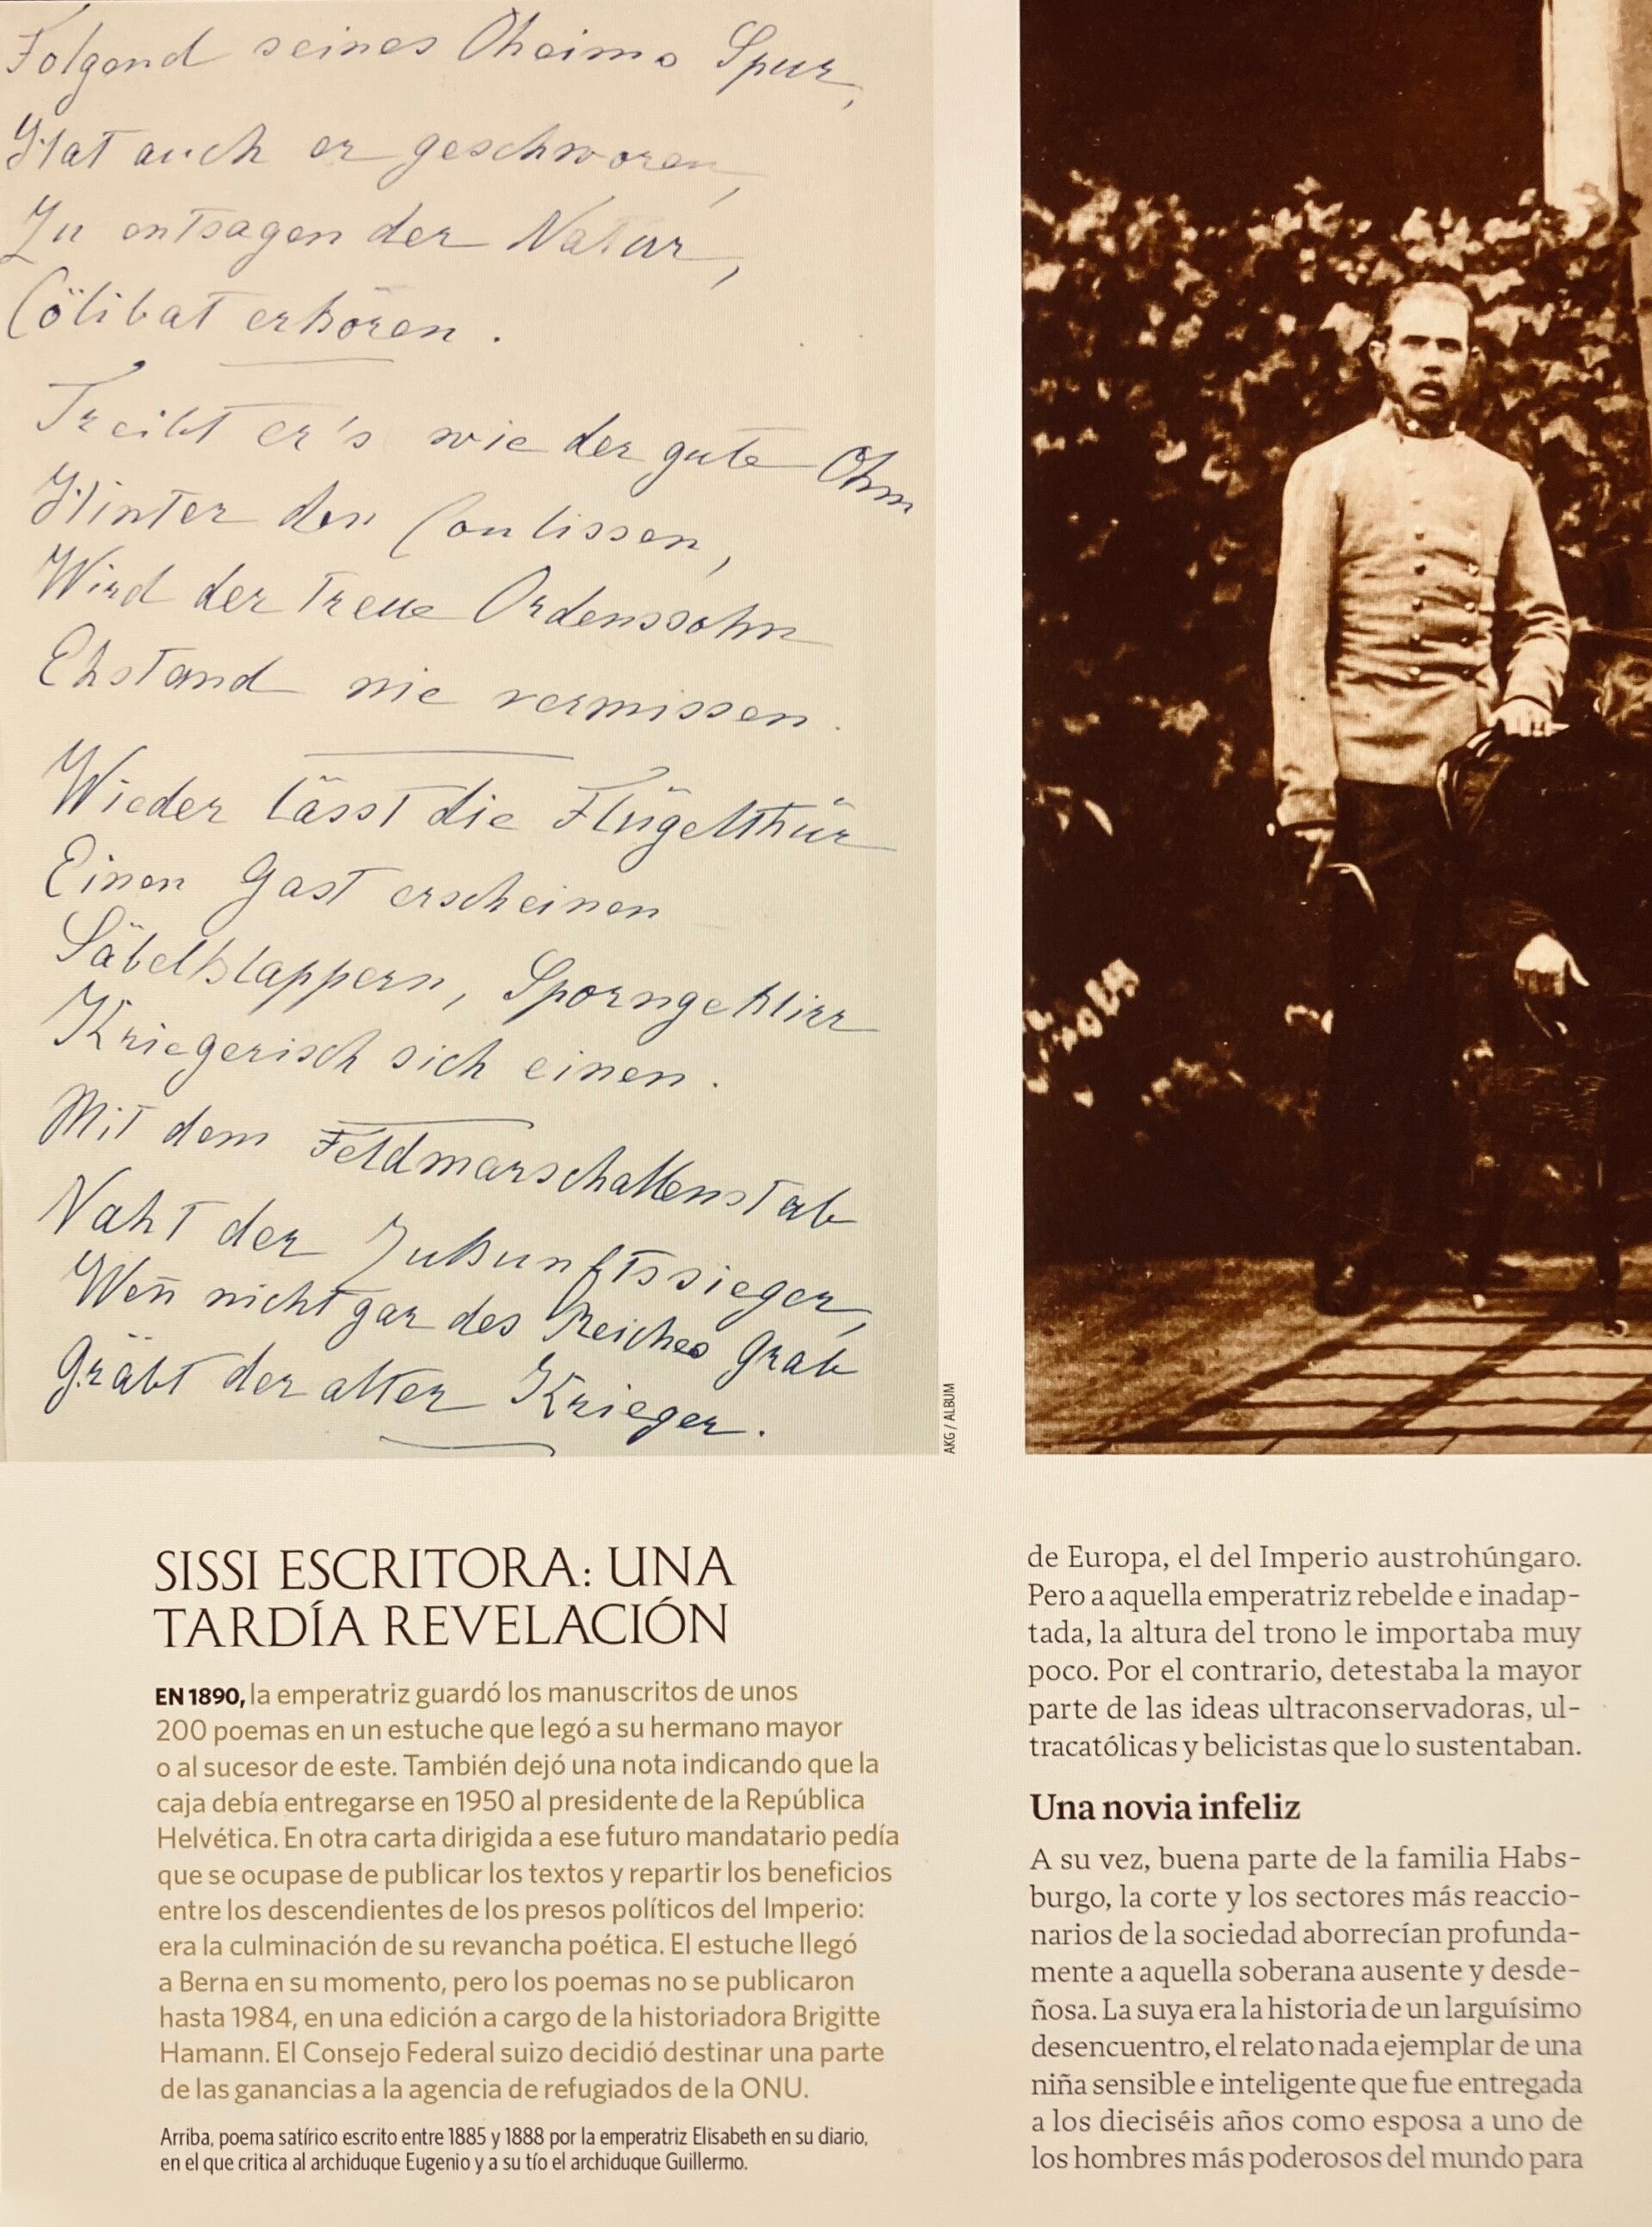 Folgend seines Oheims Spur,
Hat auch er geschworen,
Zu entsagen der Natur,
Cölibat erkören.
Treibt er's wie der gute Ohm
Hinter den Coulissen,
Wird der treue Ordenssohn
Ehstand nie vermissen.
Wieder lässt die Flügelthür
Einen Gast erscheinen
Säbelklappern, Sporngeklirr
Kriegerisch sich einen.
Mit dem Feldmarschallenstab
Naht der Zukunftssieger,
Weñ nicht gar des Reiches Grab
Gräbt der alter Krieger.
AKG / ALBUM
SISSI ESCRITORA: UNA
TARDÍA REVELACIÓN
EN 1890, la emperatriz guardó los manuscritos de unos
200 poemas en un estuche que legó a su hermano mayor
o al sucesor de este. También dejó una nota indicando que la
caja debía entregarse en 1950 al presidente de la República
Helvética. En otra carta dirigida a ese futuro mandatario pedía
que se ocupase de publicar los textos y repartir los beneficios
entre los descendientes de los presos políticos del Imperio:
era la culminación de su revancha poética. El estuche llegó
a Berna en su momento, pero los poemas no se publicaron
hasta 1984, en una edición a cargo de la historiadora Brigitte
Hamann. El Consejo Federal suizo decidió destinar una parte
de las ganancias a la agencia de refugiados de la ONU.
Arriba, poema satírico escrito entre 1885 y 1888 por la emperatriz Elisabeth en su diario,
en el que critica al archiduque Eugenio y a su tío el archiduque Guillermo.
de Europa, el del Imperio austrohúngaro.
Pero a aquella emperatriz rebelde e inadap-
tada, la altura del trono le importaba muy
poco. Por el contrario, detestaba la mayor
parte de las ideas ultraconservadoras, ul-
tracatólicas y belicistas que lo sustentaban.
Una novia infeliz
A su vez, buena parte de la familia Habs-
burgo, la corte y los sectores más reaccio-
narios de la sociedad aborrecían profunda-
mente a aquella soberana ausente y desde-
ñosa. La suya era la historia de un larguísimo
desencuentro, el relato nada ejemplar de una
niña sensible e inteligente que fue entregada
a los dieciséis años como esposa a uno de
los hombres más poderosos del mundo para